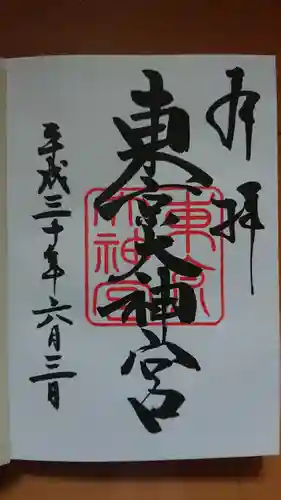 奉拝
東京大神宮
東京
大神宮
平成三十年六月三日